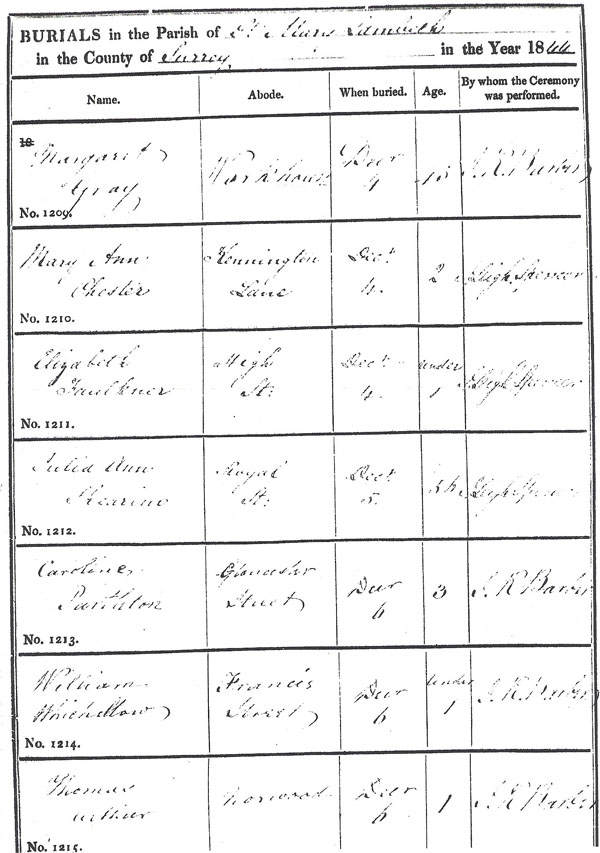 BURIALS in the Parish of St Marys Lambeth
in the County of Surrey in the Year 1844
Name. Abode. When buried. Age. By whom the Ceremony was performed.
Margaret
Gray
Workhouse
Decr
4
J. R. Barber
No. 1209.
Mary Ann
Chester
Kennington
Lane
Decr
4.
2
Leigh Spencer
No. 1210.
Elizabeth
Faulkner
High
St:
Decr
4.
under
1
Leigh Spencer
No. 1211.
Julia Ann
Royal
St:
Decr
5.
Leigh Spencer
No. 1212.
Caroline
Gloucester
Street
Decr
6
3
J. R. Barber
No. 1213.
William
Francis
Street
Decr
6
Under
1
J. R. Barber
No. 1214.
Thomas
Arthur
Norwood
Decr
6
1
J. R. Barber
No. 1215.